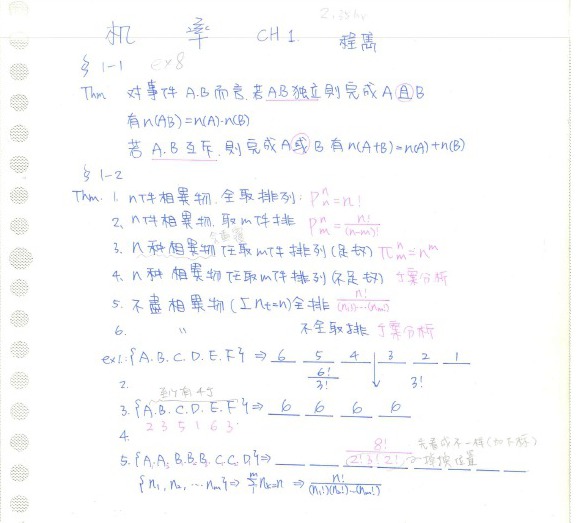 机 率 CH 1. 程雋
§ 1-1 ex8
Thm 對事件 A.B 而言, 若 A.B 獨立 則完成 A 且 B
有 n(AB)=n(A)·n(B)
若 A.B 互斥, 則完成 A 或 B 有 n(A+B)=n(A)+n(B)
§ 1-2
Thm. 1. n件相異物, 全取排列: Pⁿₙ=n!
2. n件相異物, 取m件排 Pⁿₘ=n!/(n-m)!
3. n種相異物任取m件排列(足夠) πⁿₘ=nᵐ
4. n種相異物任取m件排列(不足夠) 方案分析
5. 不盡相異物(Σnt=n)全排 n!/(n₁!)…(nₘ!)
6. 〃 不全取排 方案分析
ex1.{A.B.C.D.E.F}⇒ 6 5 4 3 2 1
2. 6!/3! 3!
至少有4個
3.{A.B.C.D.E.F}⇒ 6 6 6 6
2 3 5 1 6 3
4.
5.{A.A.B.B.B.C.C.D}⇒ 8!/2!3!2! 先看成不一樣(加下標)
{n₁, n₂, …nₘ}⇒ Σnₖ=n ⇒ n!/(n₁!)(n₂!)…(nₘ!)